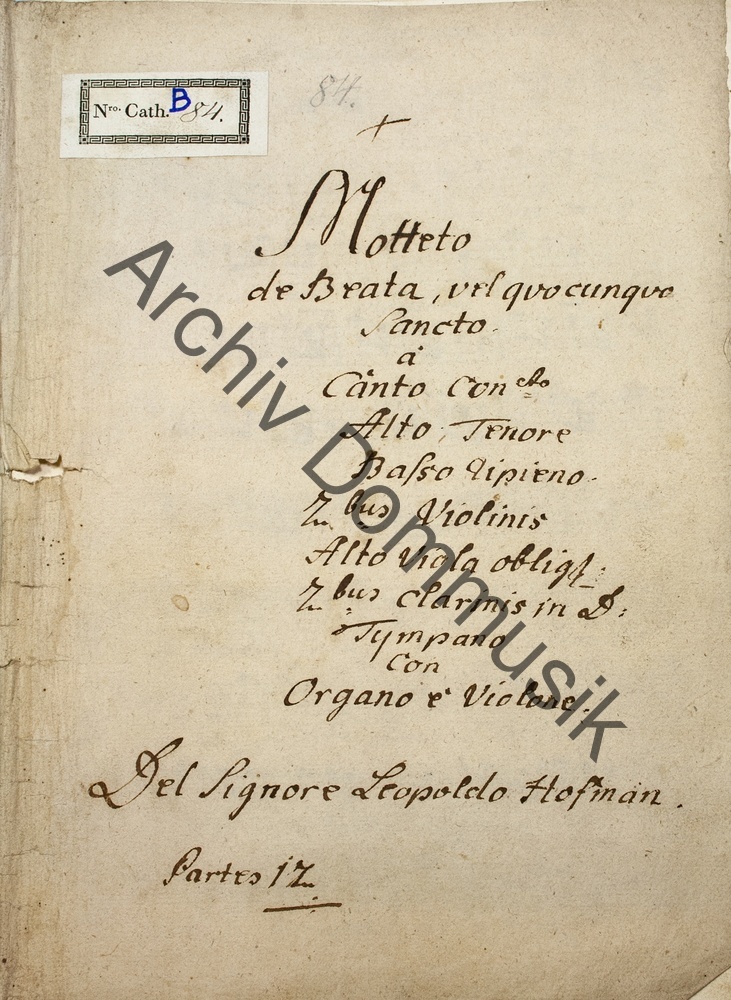 84.
Nro. Cath. B 84.
Motteto
de Beata, vel quocunque
Sancto.
a
Canto Concto
Alto, Tenore
Basso Ripieno.
2bus Violinis
Alto viola obligt:
2bus Clarinis in D:
Tympano
Con
Organo e Violone.
Del Signore Leopoldo Hofman.
Partes 12
Archiv Dommusik